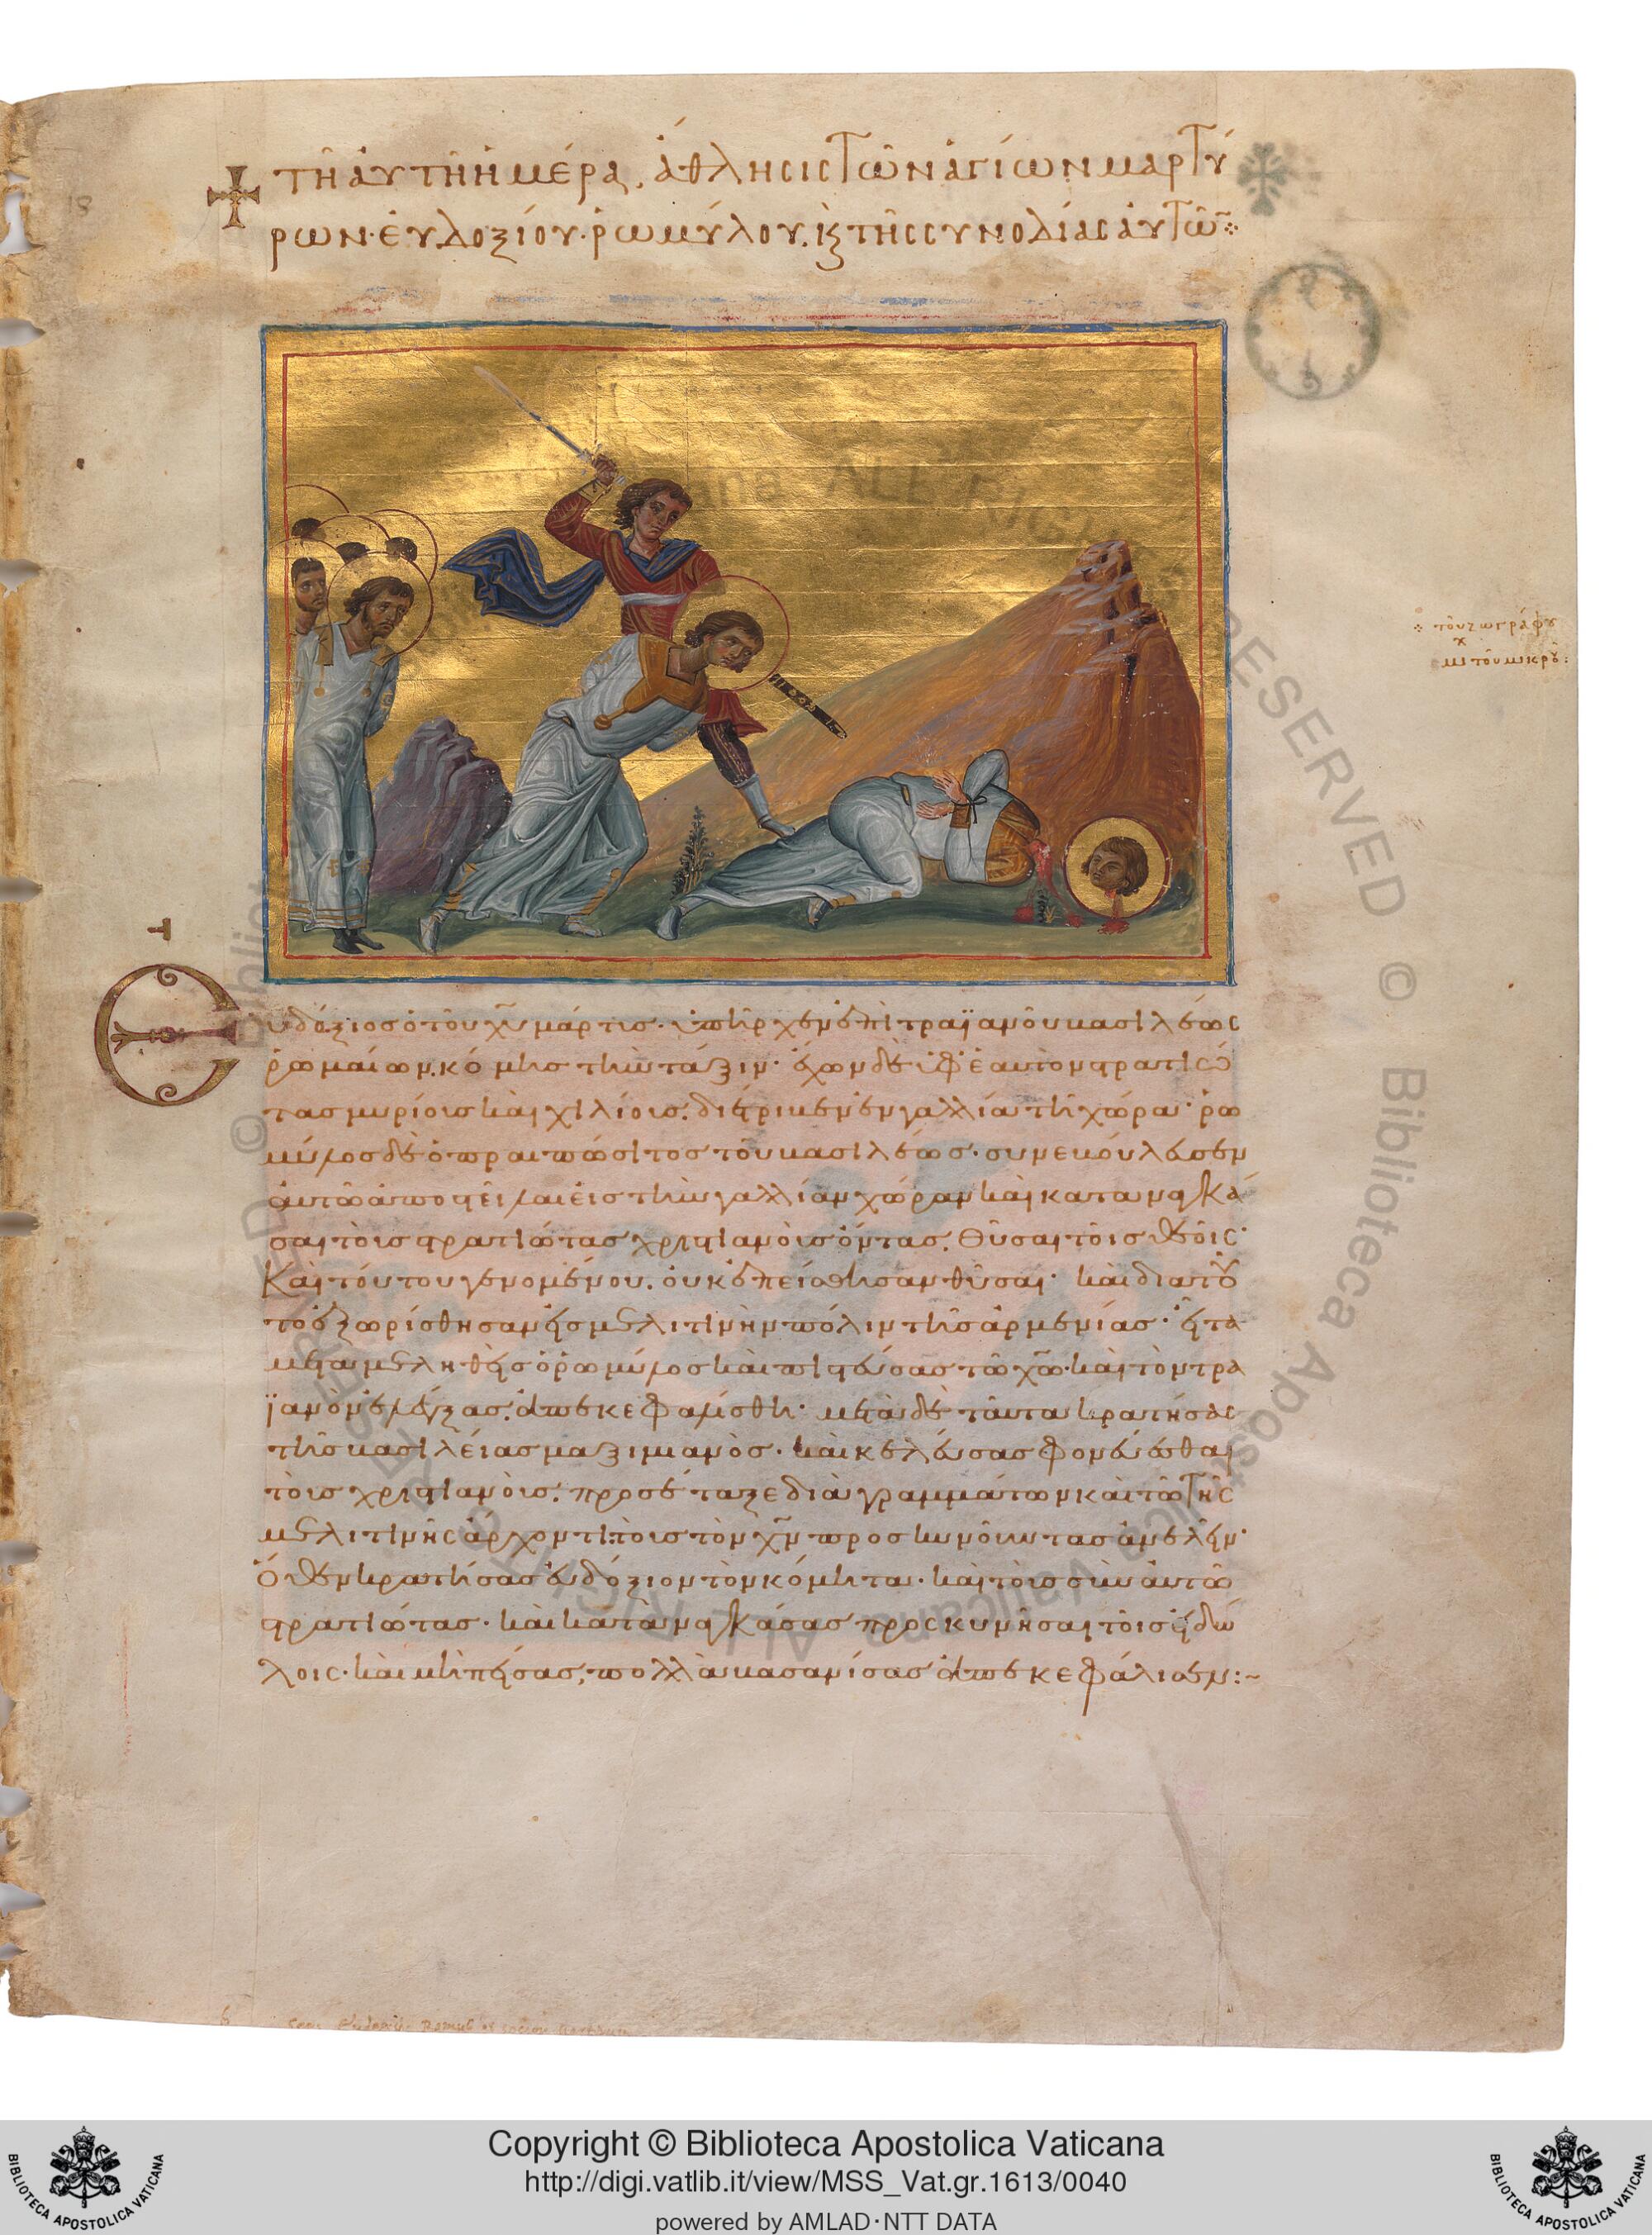 τῆ αὐτῆ ἡμέρα, ἄθλησις τῶν ἁγίων μαρτύ
ρων· εὐδοξίου· ῥωμύλου, κ(αὶ) τῆς συνοδίας αὐτῶ(ν)
τοῦ ζωγράφου
μι(χ) τοῦ μικροῦ:
Εὐδόξιος ὁ τοῦ χ(ριστο)ῦ μάρτις· ὑπῆρχεν ἐπὶ τραϊανοῦ βασιλέως
ῥωμαίων. κόμης τὴν τάξιν· ἔχων δὲ ὑφ' ἑαυτὸν στρατιώ
τας μυρίους καὶ χιλίους. διέτριβεν ἐν γαλλία τῆ χώρα· ῥω
μύλος δὲ ὁ πραιπώσιτος τοῦ βασιλέως· συνεβούλευσεν
αὐτῶ ἀποστεῖλαι εἰς τὴν γαλλίαν χώραν καὶ καταναγκά
σαι τοὺς στρατιώτας χριστιανοὺς ὄντας. θῦσαι τοῖς θεοῖς·
Καὶ τούτου γενομένου. οὐκ ἐπείσθησαν θῦσαι· καὶ διὰ τοῦ
το ἐξωρίσθησαν εἰς μελιτινὴν πόλιν τῆς ἀρμενίας· εἶτα
μεταμεληθεὶς ὁ ῥωμύλος καὶ πιστεύσας τῶ χ(ριστ)ῶ· καὶ τὸν τρα
ϊανὸν ἐλέγξας. ἀπεκεφαλίσθη· μετὰ δὲ ταῦτα κρατήσας
τῆς βασιλείας μαξιμιανὸς· καὶ κελεύσας φονεύεσθαι
τοὺς χριστιανοὺς. προσέταξε διὰ γραμμάτων καὶ τῶ τῆς
μελιτινῆς ἄρχοντι. τοὺς τὸν χ(ριστὸ)ν προσκυνοῦντας ἀνελεῖν·
Ὅθεν κρατήσας εὐδόξιον τὸν κόμητα· καὶ τοὺς σὺν αὐτῶ
στρατιώτας· καὶ καταναγκάσας προσκυνῆσαι τοῖς εἰδώ
λοις· καὶ μὴ πείσας, πολλὰ βασανίσας ἀπεκεφάλισεν:~
18
RESERVED © Biblioteca Apostolica Vaticana ALL RIGHTS RESERVED ©
Copyright © Biblioteca Apostolica Vaticana
http://digi.vatlib.it/view/MSS_Vat.gr.1613/0040
powered by AMLAD·NTT DATA
BIBLIOTECA APOSTOLICA VATICANA
BIBLIOTECA APOSTOLICA VATICANA